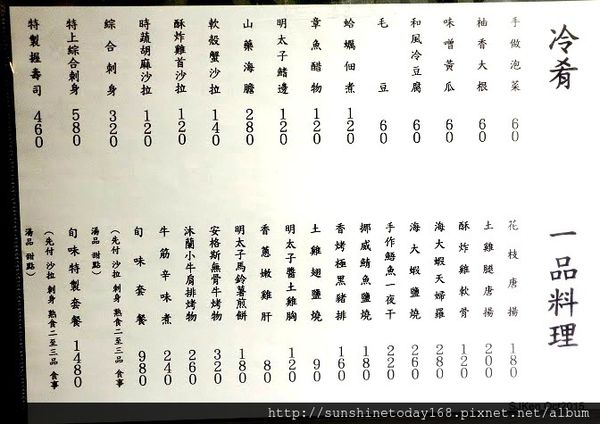 冷肴
手做泡菜 60
柚香大根 60
味噌黃瓜 60
和風冷豆腐 60
毛豆 60
蛤蠣佃煮 120
章魚醋物 120
明太子鰭邊 120
山藥海膽 280
軟殼蟹沙拉 140
酥炸雞首沙拉 120
時蔬胡麻沙拉 120
綜合刺身 320
特上綜合刺身 580
特製握壽司 460
一品料理
花枝唐揚 180
土雞腿唐揚 200
酥炸雞軟骨 120
海大蝦天婦羅 280
海大蝦鹽燒 260
手作鯃魚一夜干 220
挪威鯖魚鹽燒 180
香烤極黑豬排 160
土雞翅鹽燒 90
明太子醬土雞胸 120
香蔥嫩雞肝 80
明太子馬鈴薯煎餅 180
安格斯無骨牛烤物 320
沐蘭小牛肩排烤物 260
牛筋辛味煮 240
旬味套餐 980
(先付 沙拉 刺身 熟食二至三品 食事
湯品 甜點)
旬味特製套餐 1480
(先付 沙拉 刺身 熟食二至三品 食事
湯品 甜點)
http://sunshinetoday168.pixnet.net/album